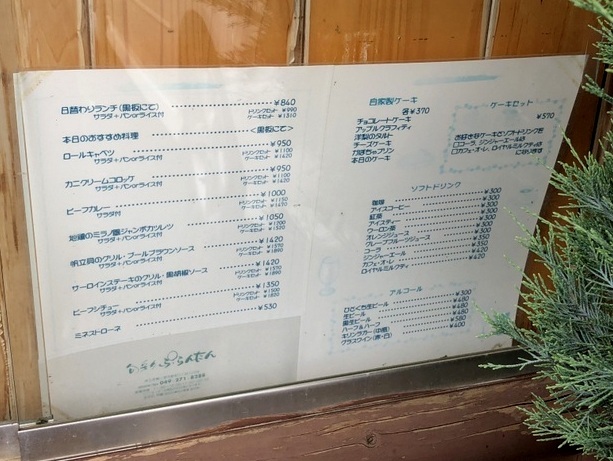 日替わりランチ(黒板にて) ¥840
サラダ+パンorライス付 ドリンクセット ¥990
ケーキセット ¥1310
本日のおすすめ料理 <黒板にて>
サラダ+パンorライス付
ロールキャベツ ¥950
サラダ+パンorライス付 ドリンクセット ¥1100
ケーキセット ¥1420
カニクリームコロッケ ¥950
サラダ+パンorライス付 ドリンクセット ¥1100
ケーキセット ¥1420
ビーフカレー ¥1000
サラダ付 ドリンクセット ¥1150
ケーキセット ¥1470
ミラノ風ジャンボカツレツ ¥1050
サラダ+パンorライス付 ドリンクセット ¥1200
ケーキセット
帆立貝のグリル・ブールブラウンソース ¥1420
サラダ+パンorライス付 ドリンクセット ¥1570
ケーキセット ¥1890
サーロインステーキのグリル・黒胡椒ソース ¥1420
サラダ+パンorライス付 ドリンクセット ¥1570
ケーキセット ¥1890
ビーフシチュー ¥1350
サラダ+パンorライス付 ドリンクセット ¥1500
ケーキセット
ミネストローネ ¥530
自家製ケーキ
各¥370
チョコレートケーキ
アップルクラフティ
洋梨のタルト
チーズケーキ
かぼちゃプリン
本日のケーキ
ケーキセット
¥570
お好きなケーキとソフトドリンクを
コーラ、ジンジャーエール
カフェ・オ・レ、ロイヤルミルクティ
ソフトドリンク
珈琲 ¥300
アイスコーヒー ¥300
紅茶 ¥300
アイスティー ¥300
ウーロン茶 ¥300
オレンジジュース ¥300
グレープフルーツジュース ¥300
コーラ ¥350
ジンジャーエール ¥350
カフェ・オ・レ ¥420
ロイヤルミルクティ ¥420
アルコール
ひとくち生ビール ¥300
生ビール ¥480
黒生ビール ¥480
ハーフ&ハーフ ¥480
キリンラガー(中瓶) ¥580
グラスワイン(赤・白) ¥400